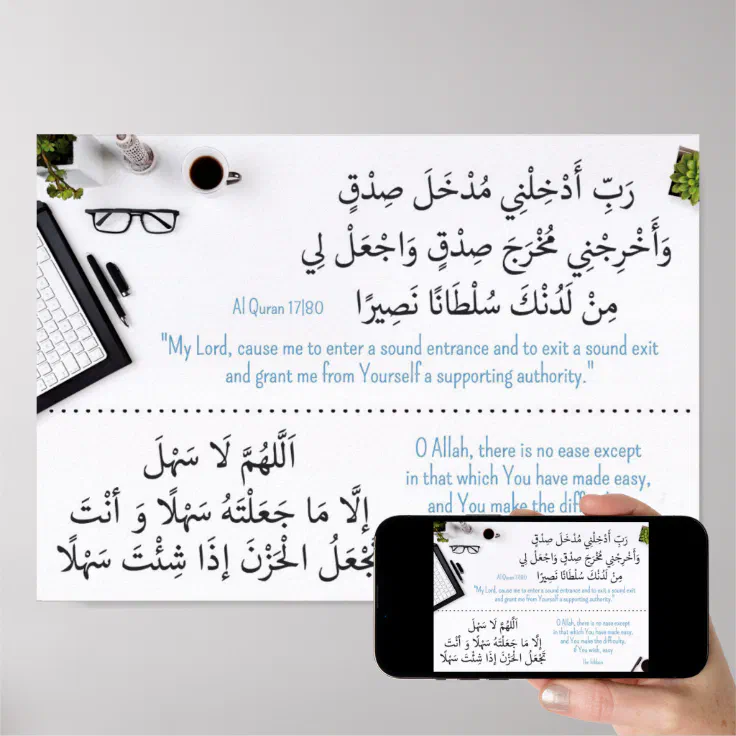 رَبِّ أَدْخِلْنِي مُدْخَلَ صِدْقٍ
وَأَخْرِجْنِي مُخْرَجَ صِدْقٍ وَاجْعَلْ لِي
مِنْ لَدُنْكَ سُلْطَانًا نَصِيرًا
Al Quran 17|80
"My Lord, cause me to enter a sound entrance and to exit a sound exit
and grant me from Yourself a supporting authority."
اَللَّهُمَّ لَا سَهْلَ
إِلَّا مَا جَعَلْتَهُ سَهْلًا وَ أَنْتَ
تَجْعَلُ الْحَزْنَ إِذَا شِئْتَ سَهْلًا
O Allah, there is no ease except
in that which You have made easy,
and You make the
رَبِّ أَدْخِلْنِي مُدْخَلَ صِدْقٍ
وَأَخْرِجْنِي مُخْرَجَ صِدْقٍ وَاجْعَلْ لِي
مِنْ لَدُنْكَ سُلْطَانًا نَصِيرًا
Al Quran 17|80
"My Lord, cause me to enter a sound entrance and to exit a sound exit
and grant me from Yourself a supporting authority."
اَللَّهُمَّ لَا سَهْلَ
إِلَّا مَا جَعَلْتَهُ سَهْلًا وَ أَنْتَ
تَجْعَلُ الْحَزْنَ إِذَا شِئْتَ سَهْلًا
O Allah, there is no ease except
in that which You have made easy,
and You make the difficulty,
if You wish, easy
Ibn Hibban